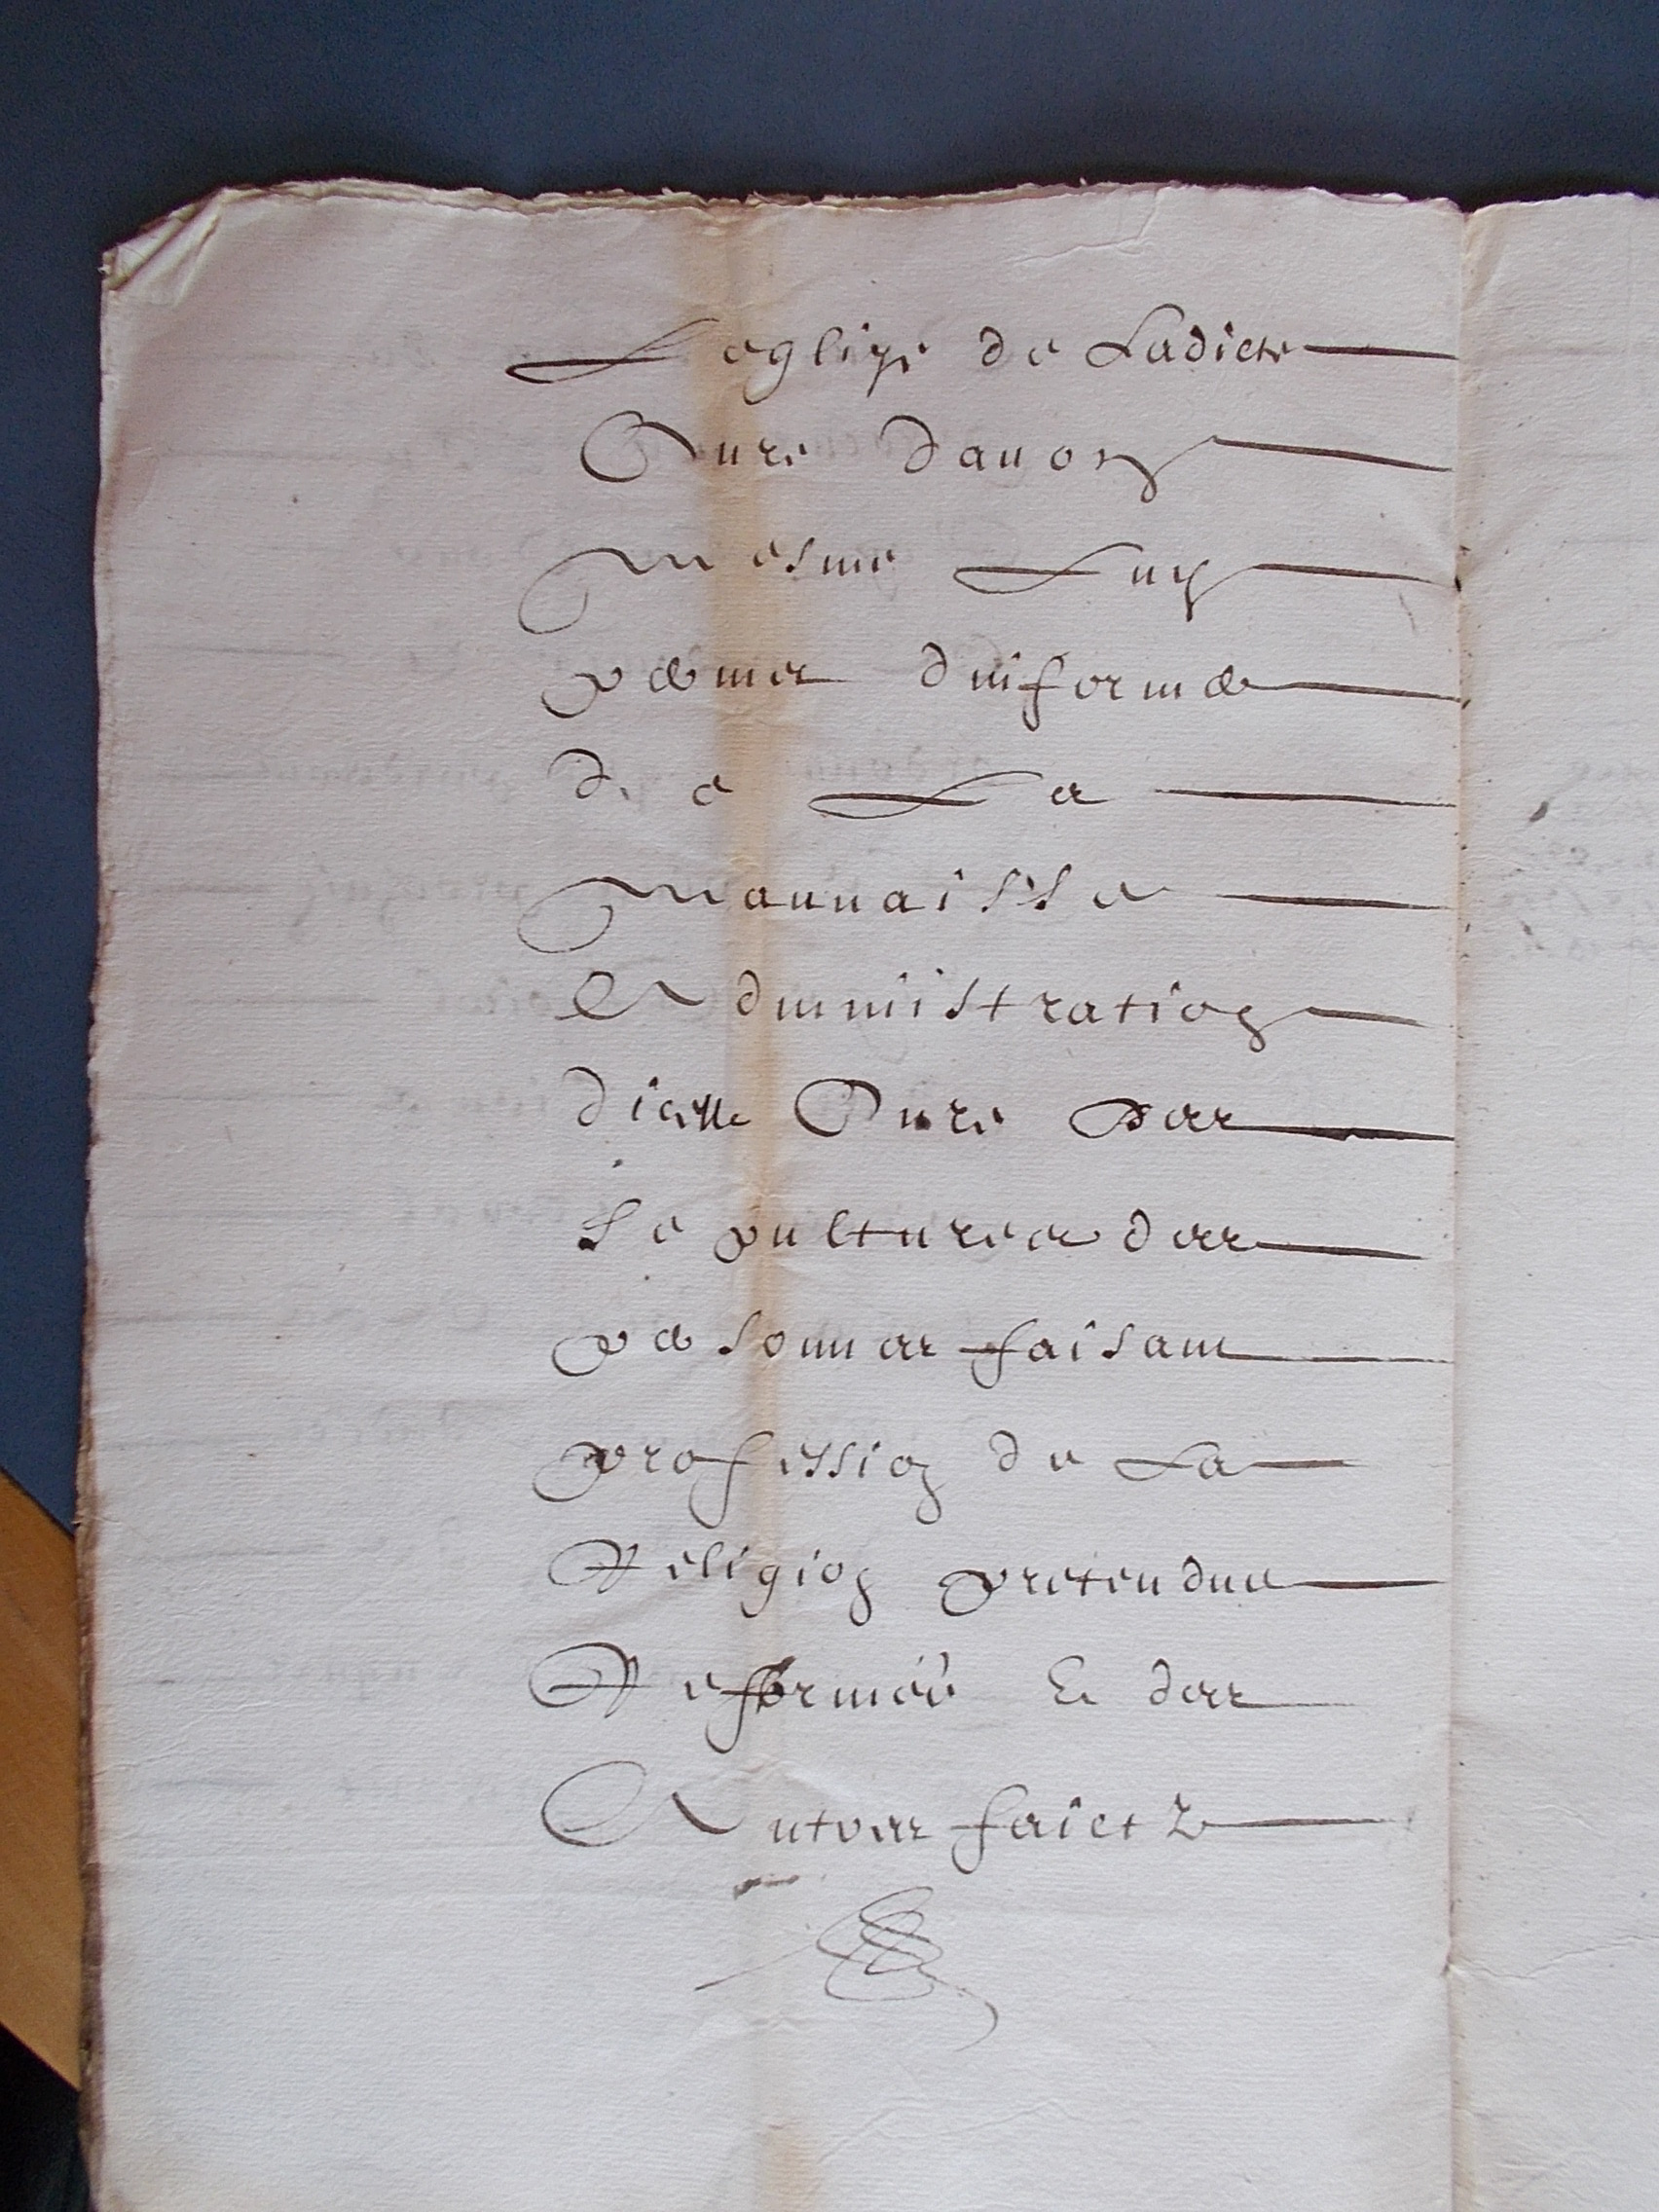 Leglize de Ladicte
Cure dauoy
mesme Luy
permet dinformer
de La
mauuaisse
Administration
dicelle Cure Des
Sepultures des
personnes faisant
profession de La
Religion pretendue
Reformée Et des
Autres faictz